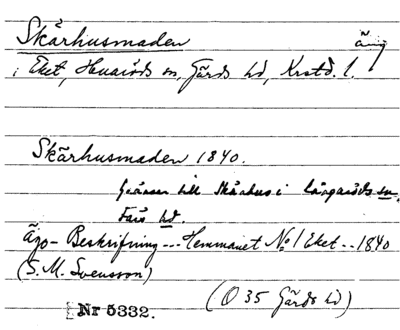 Skärhusmaden äng
i Eket, Huaröds sn, Gärds hd, Krstd. l.
Skärhusmaden 1840.
Gränsar till Skärhus i Långaröds sn.
Färs hd.
Ägo-Beskrifning --- Hemmanet No 1 Eket -- 1840
(S. M. Svensson)
(O 35 Gärds hd)
Nr 5332.